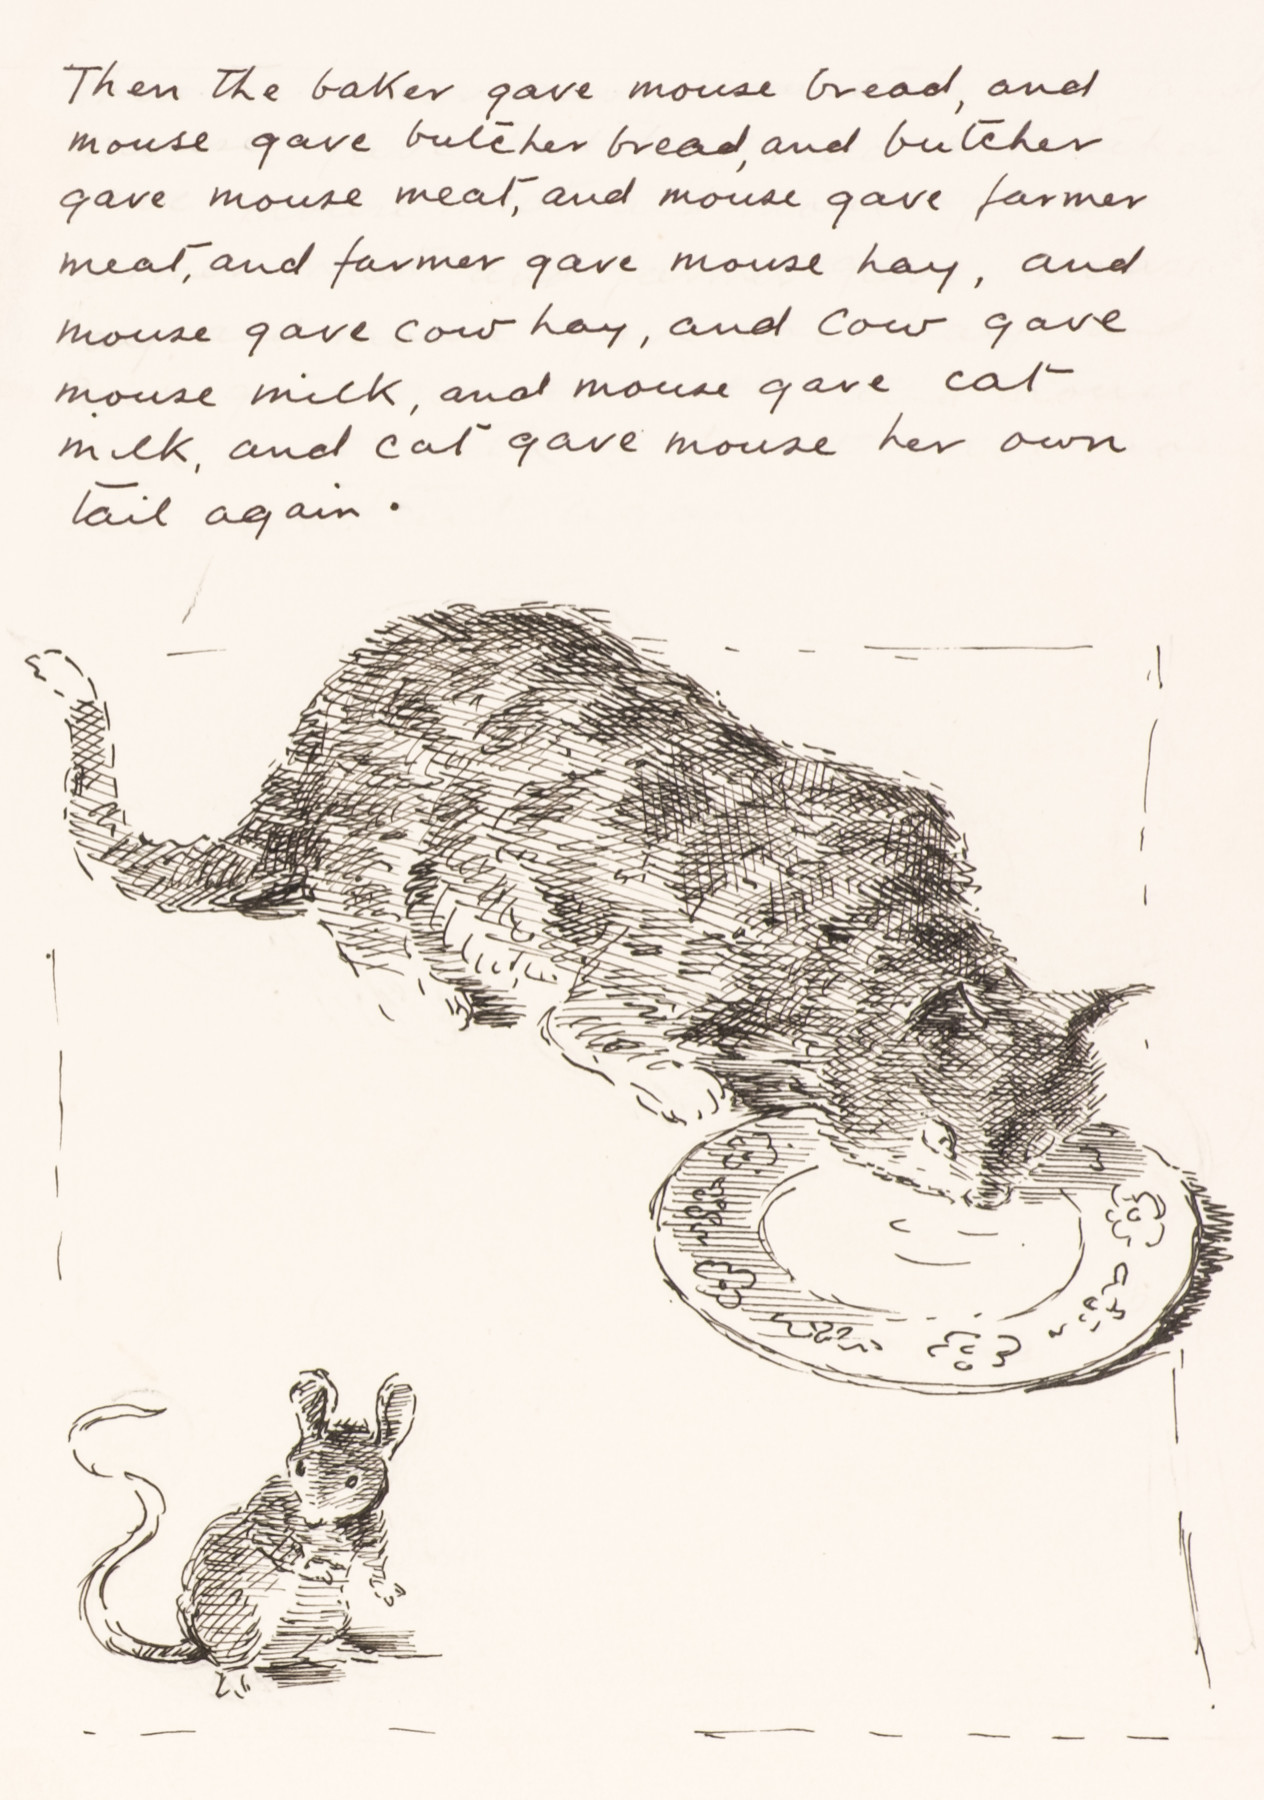 Then the baker gave mouse bread, and
mouse gave butcher bread, and butcher
gave mouse meat, and mouse gave farmer
meat, and farmer gave mouse hay, and
mouse gave cow hay, and cow gave
mouse milk, and mouse gave cat
milk, and cat gave mouse her own
tail again.